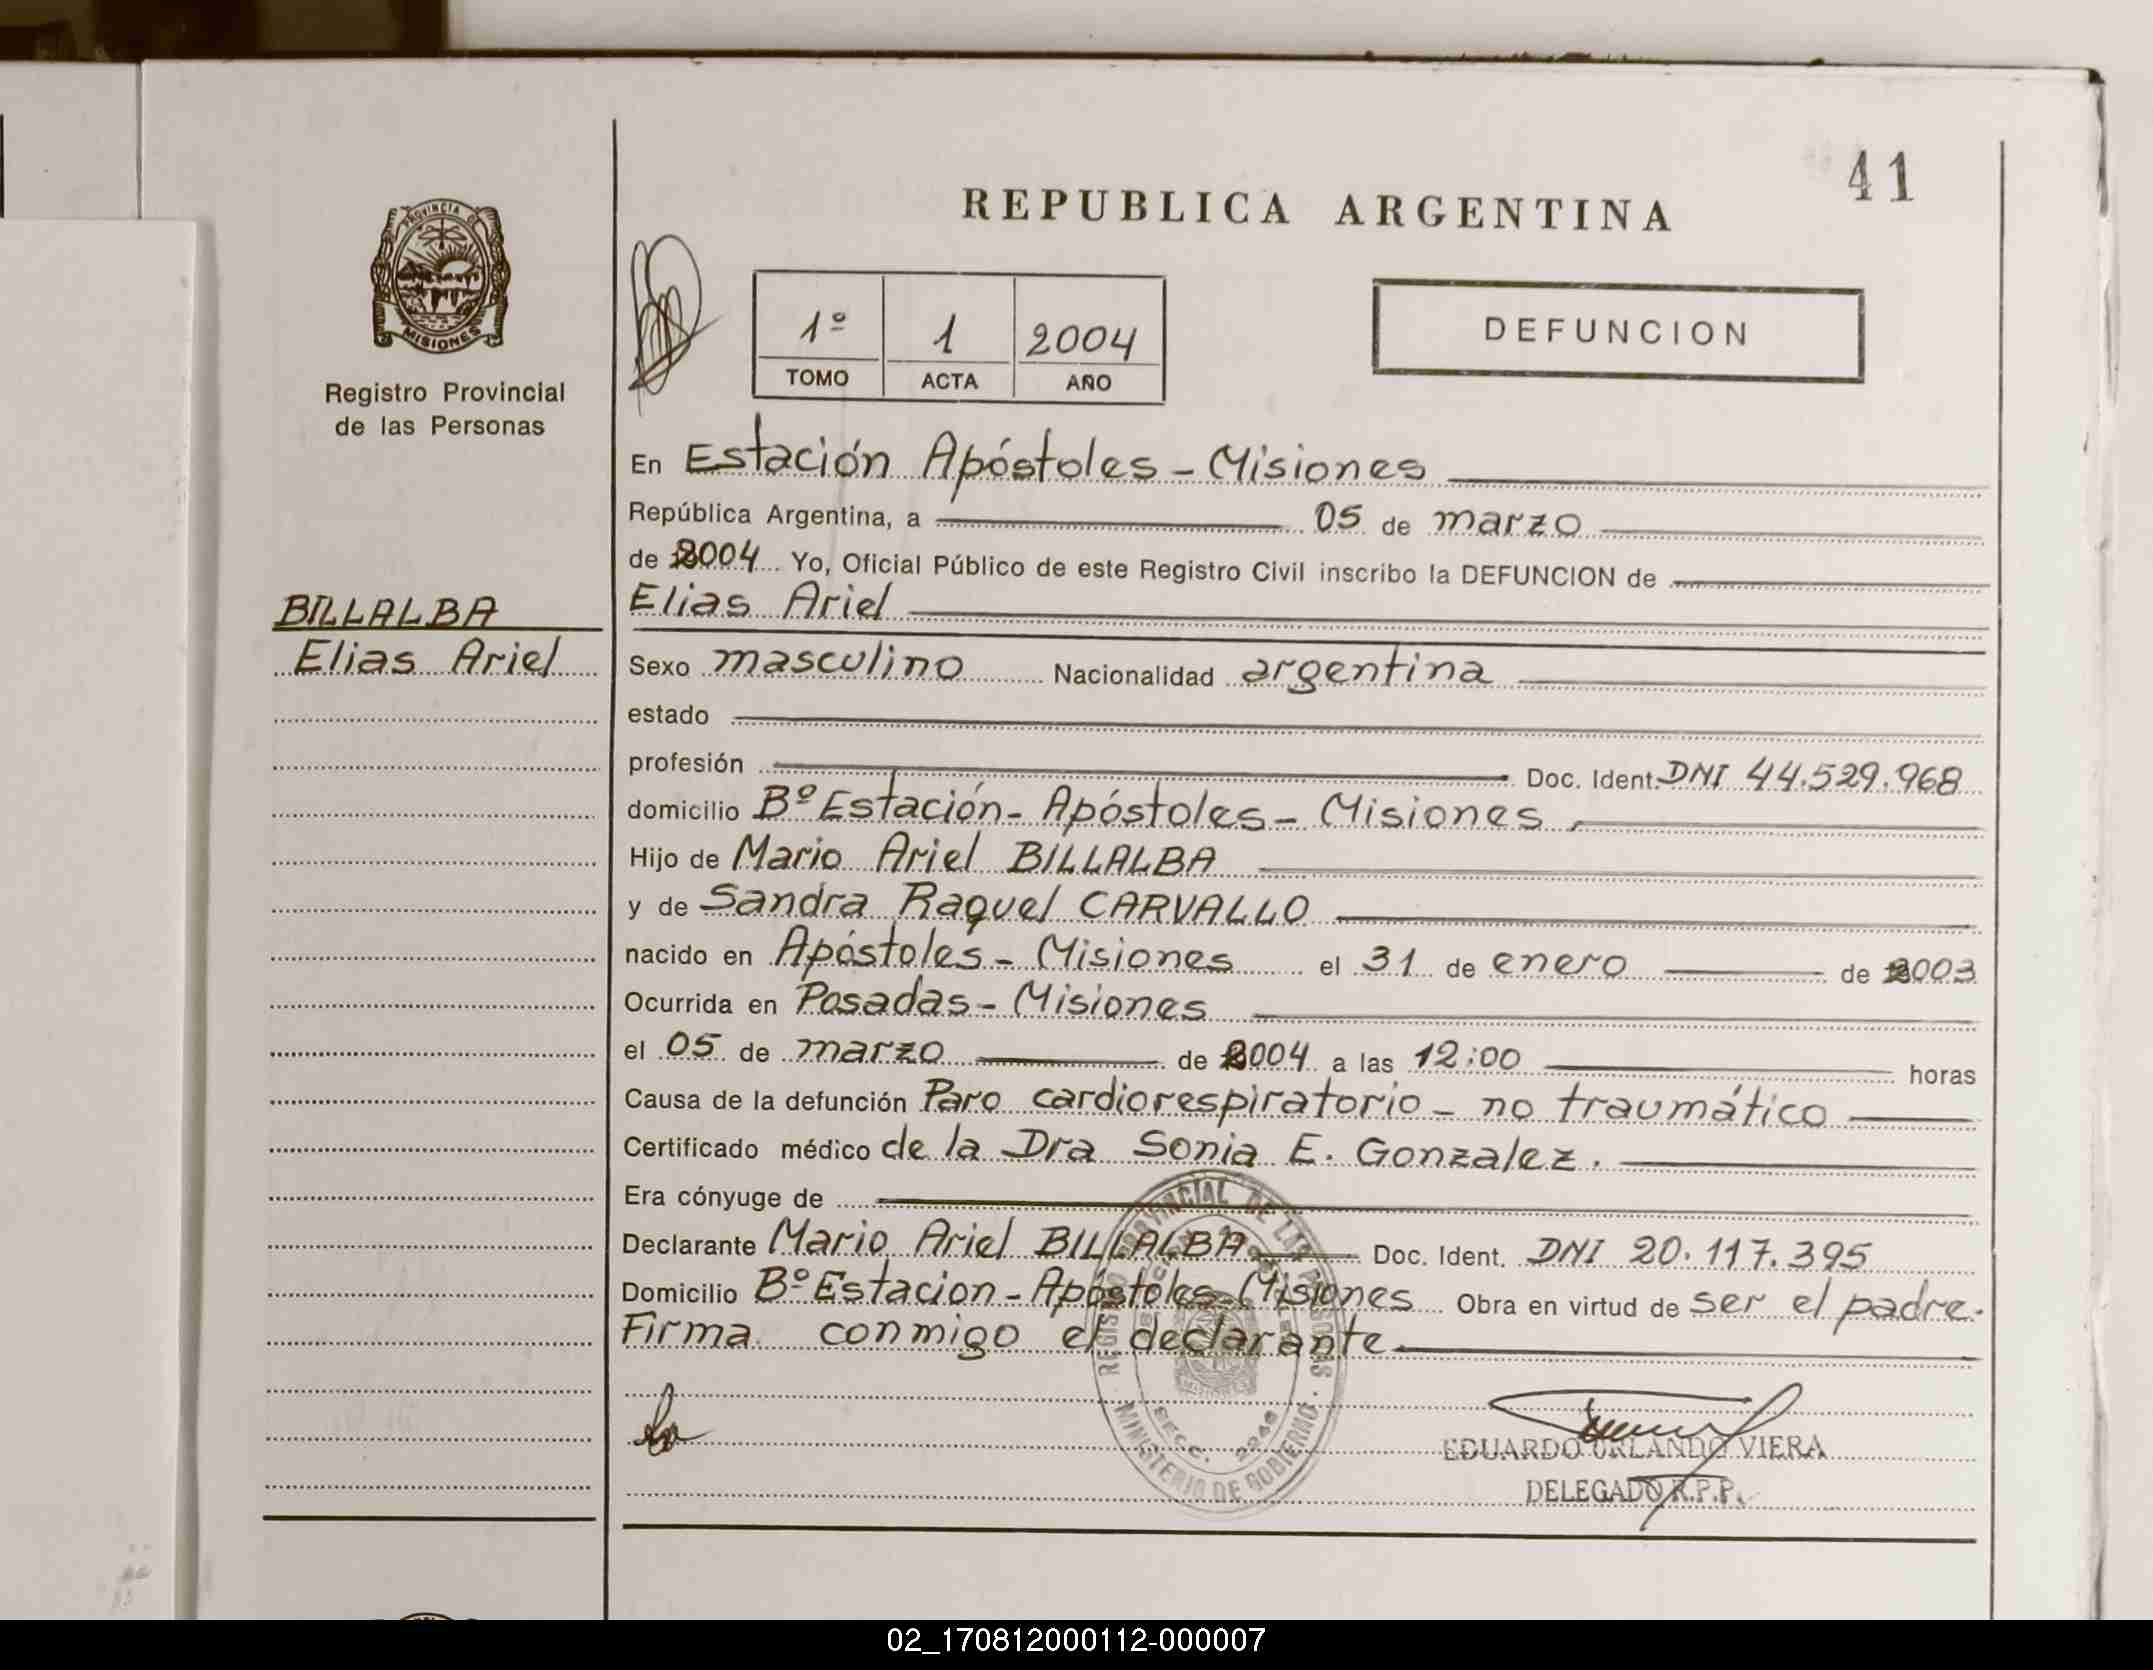 41
REPUBLICA ARGENTINA
PROVINCIA DE
MISIONES
Registro Provincial
de las Personas
1º 1 2004
TOMO ACTA AÑO
DEFUNCION
En Estación Apóstoles - Misiones
República Argentina, a 05 de marzo
de 2004 Yo, Oficial Público de este Registro Civil inscribo la DEFUNCION de
BILLALBA
Elias Ariel
Elias Ariel
Sexo masculino Nacionalidad argentina
estado
profesión Doc. Ident. DNI 44.529.968
domicilio Bº Estación - Apóstoles - Misiones
Hijo de Mario Ariel BILLALBA
y de Sandra Raquel CARVALLO
nacido en Apóstoles - Misiones el 31 de enero de 2003
Ocurrida en Posadas - Misiones
el 05 de marzo de 2004 a las 12:00 horas
Causa de la defunción Paro cardiorespiratorio - no traumático
Certificado médico de la Dra Sonia E. Gonzalez.
Era cónyuge de
Declarante Mario Ariel BILLALBA Doc. Ident. DNI 20.117.395
Domicilio Bº Estacion - Apóstoles - Misiones Obra en virtud de ser el padre.
Firma conmigo el declarante
REGISTRO PROVINCIAL DE LAS PERSONAS
MINISTERIO DE GOBIERNO
EDUARDO ORLANDO VIERA
DELEGADO R.P.P.
02_170812000112-000007